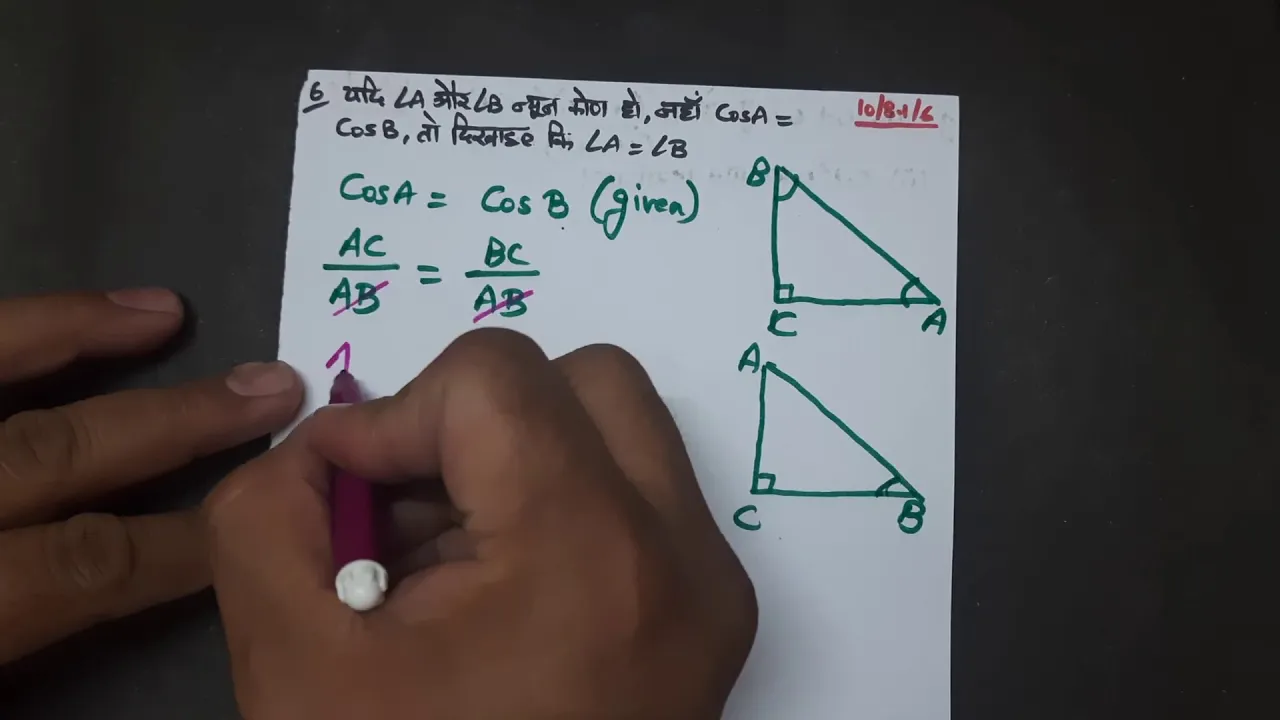 6 यदि ∠A और ∠B न्यून कोण हो, जहाँ CosA =
10/8.1/6
CosB, तो दिखाइए कि ∠A = ∠B
CosA = CosB (given)
AC/AB = BC/AB
B
C
A
A
C
B